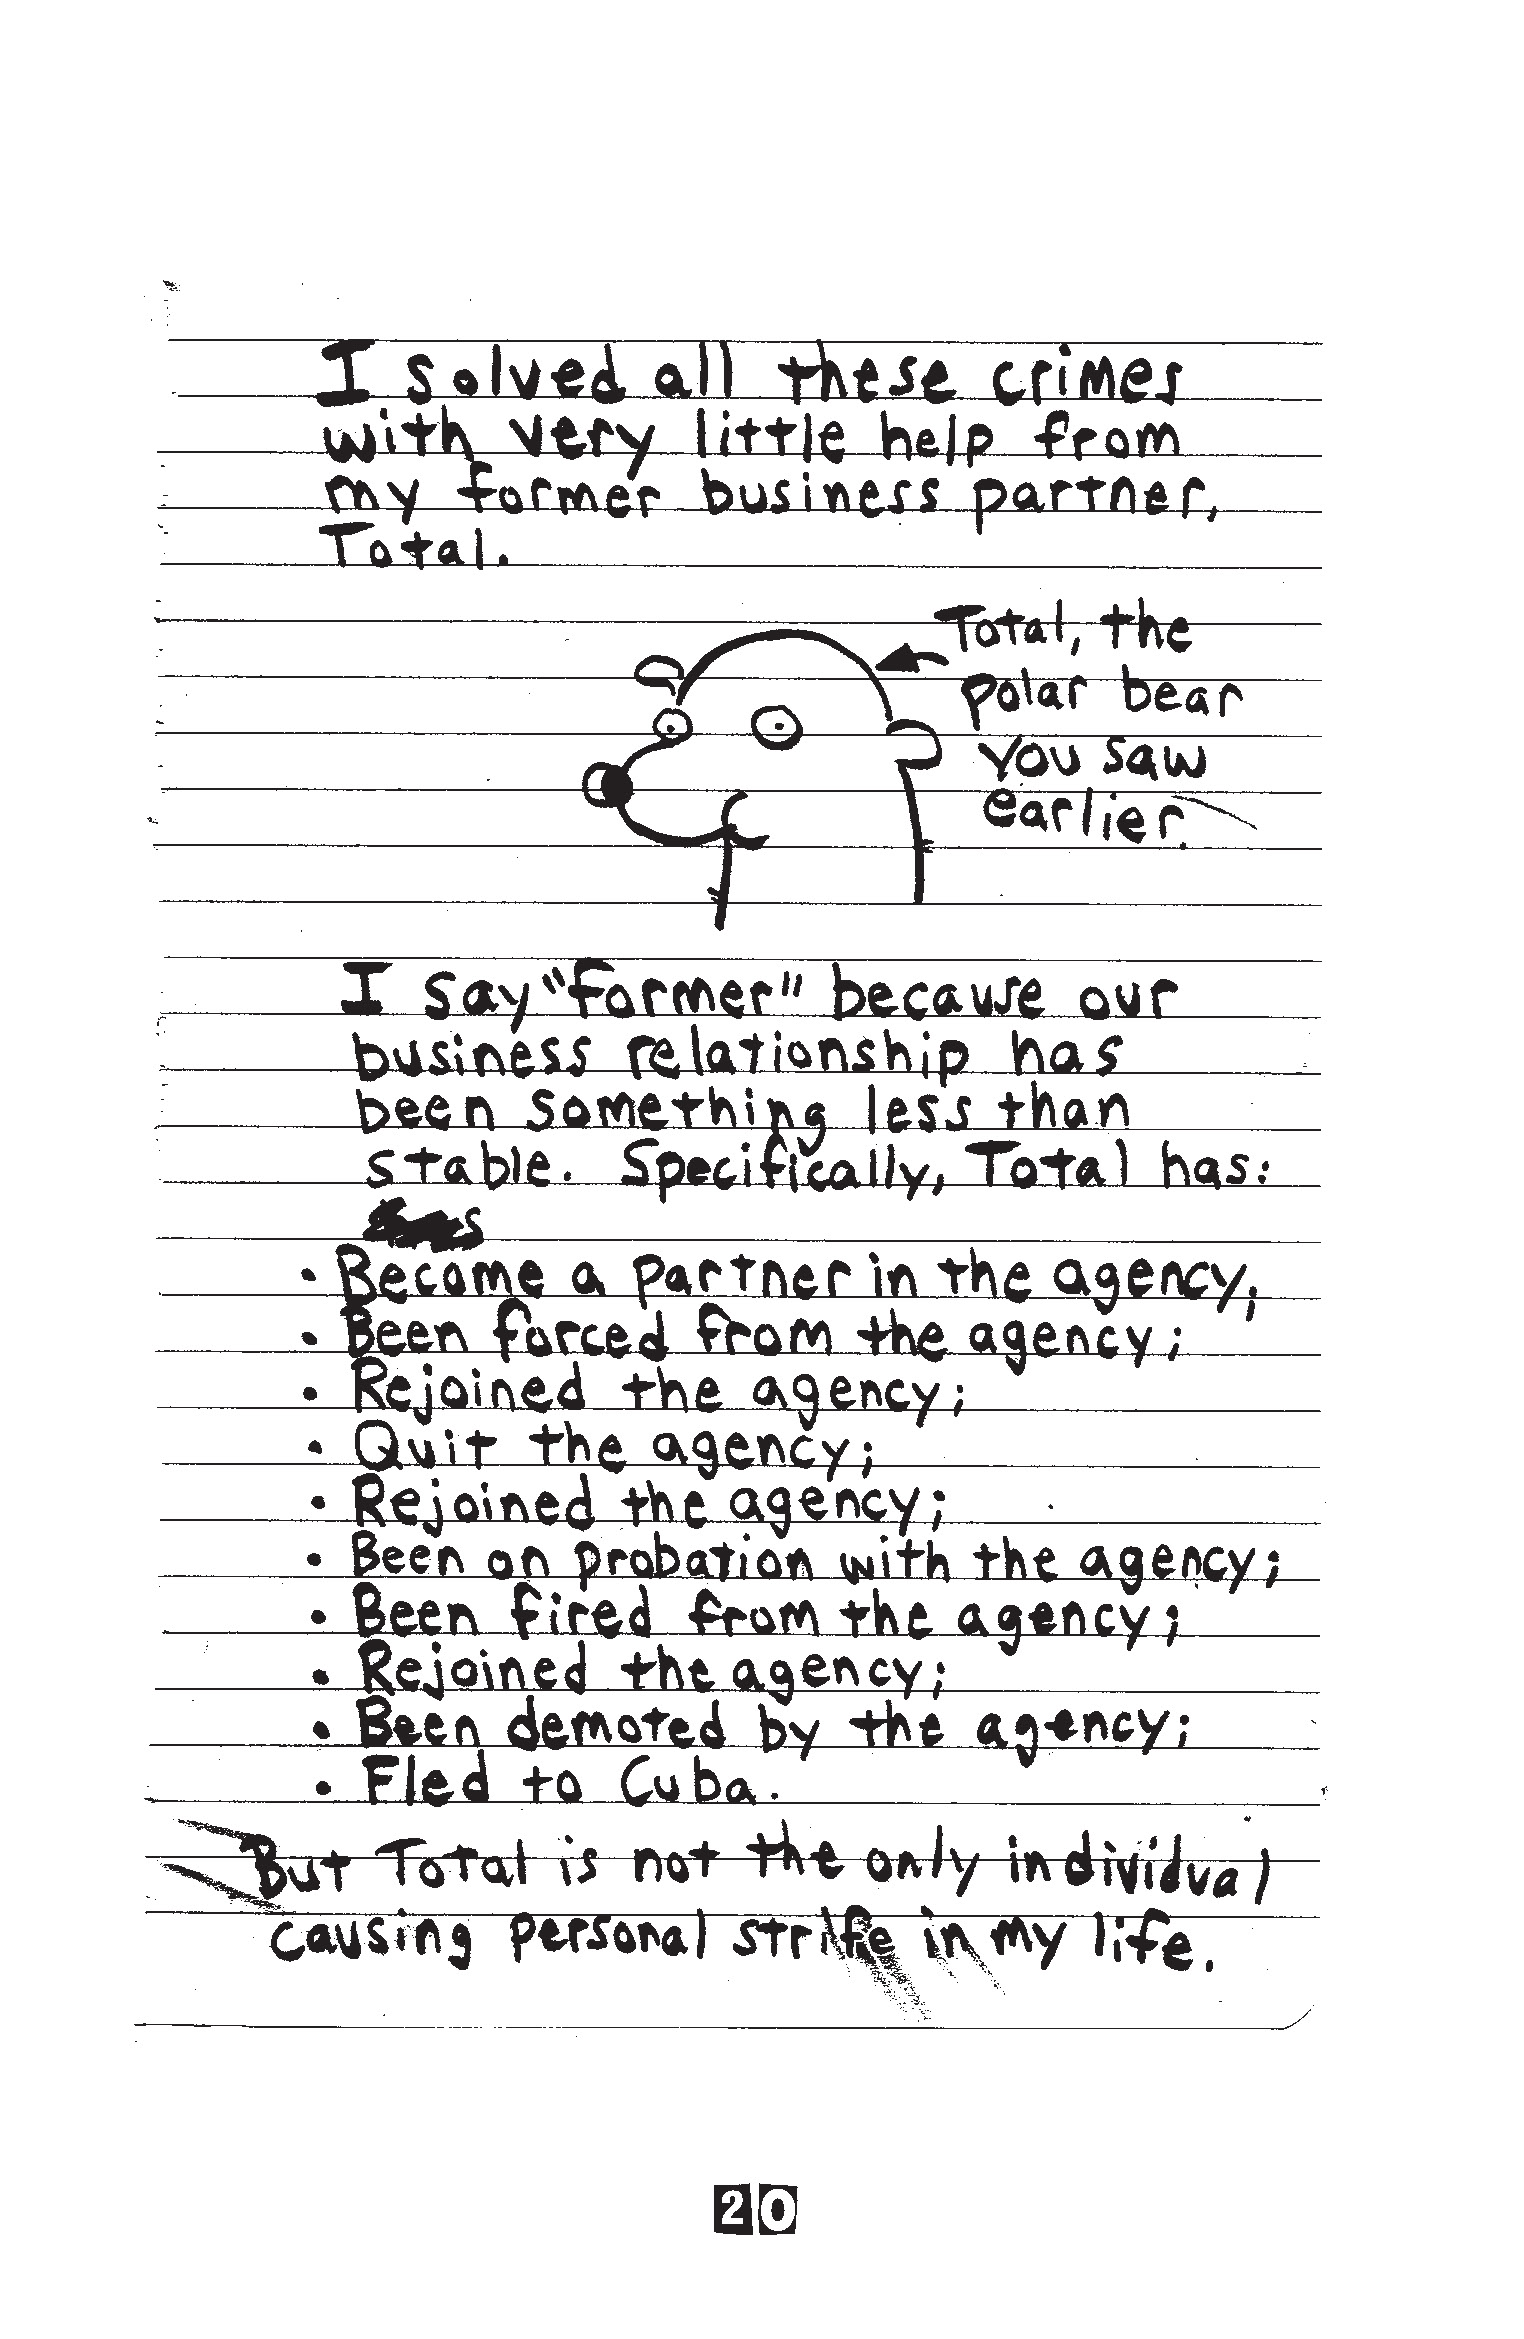 I solved all these crimes
with very little help from
my former business partner,
Total.
Total, the
polar bear
you saw
earlier.
I say "former" because our
business relationship has
been something less than
stable. Specifically, Total has:
• Become a partner in the agency;
• Been forced from the agency;
• Rejoined the agency;
• Quit the agency;
• Rejoined the agency;
• Been on probation with the agency;
• Been fired from the agency;
• Rejoined the agency;
• Been demoted by the agency;
• Fled to Cuba.
But Total is not the only individual
causing personal strife in my life.
20